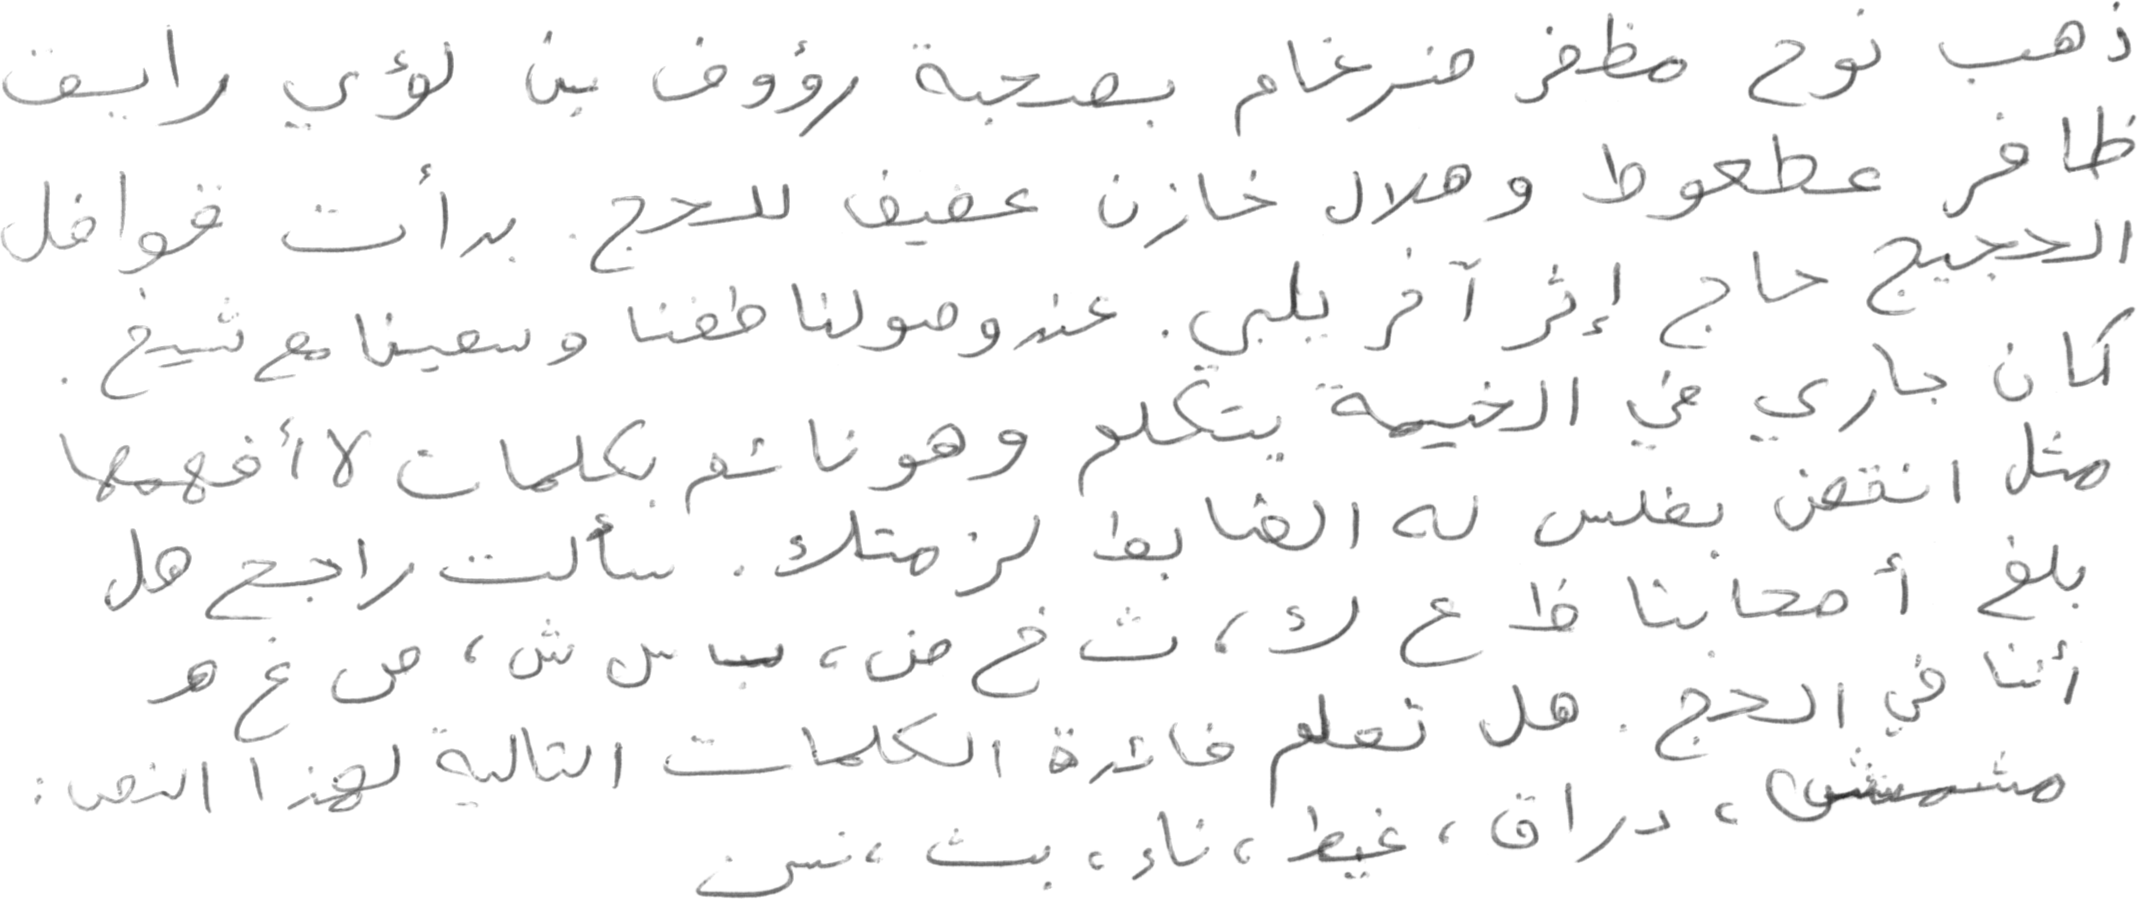 ذهب نوح مظفر ضرغام بصحبة رؤوف بن لؤي رايق
ظافر عطعوط وهلال خازن عفيف للحج. بدأت قوافل
الحجيج حاج إثر آخر يلبي. عند وصولنا طفنا وسعينا مع شيخ.
كان جاري في الخيمة يتكلم وهو نائم بكلمات لا أفهمها
مثل انتقض بغلس له الضابط لزمتك. سألت راجح هل
بلغ أصحابنا ظ ع ك، ث خ ض، ب س ش، ص غ ه
أننا في الحج. هل تعلم فائدة الكلمات التالية لهذا النص:
مشمش، دراق، غيظ، ناء، بث، نس